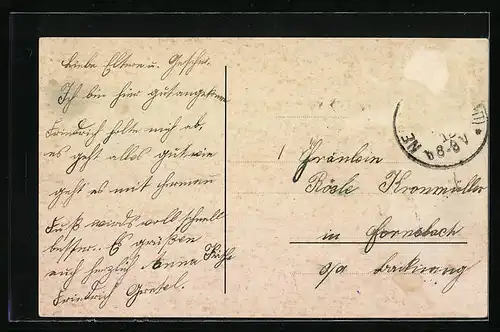 Liebe Eltern u. Geschw.
Ich bin hier gut angekommen
Friedrich holte mich ab,
es geht alles gut wie
geht es mit
Fuß wirds voll schnell
besser. Es grüßen
auch herzlich Anna
Friedrich Gretel.
Fräulein
Rösle Kronmüller
in Fornsbach
o/a Backnang
8-9 V
NE